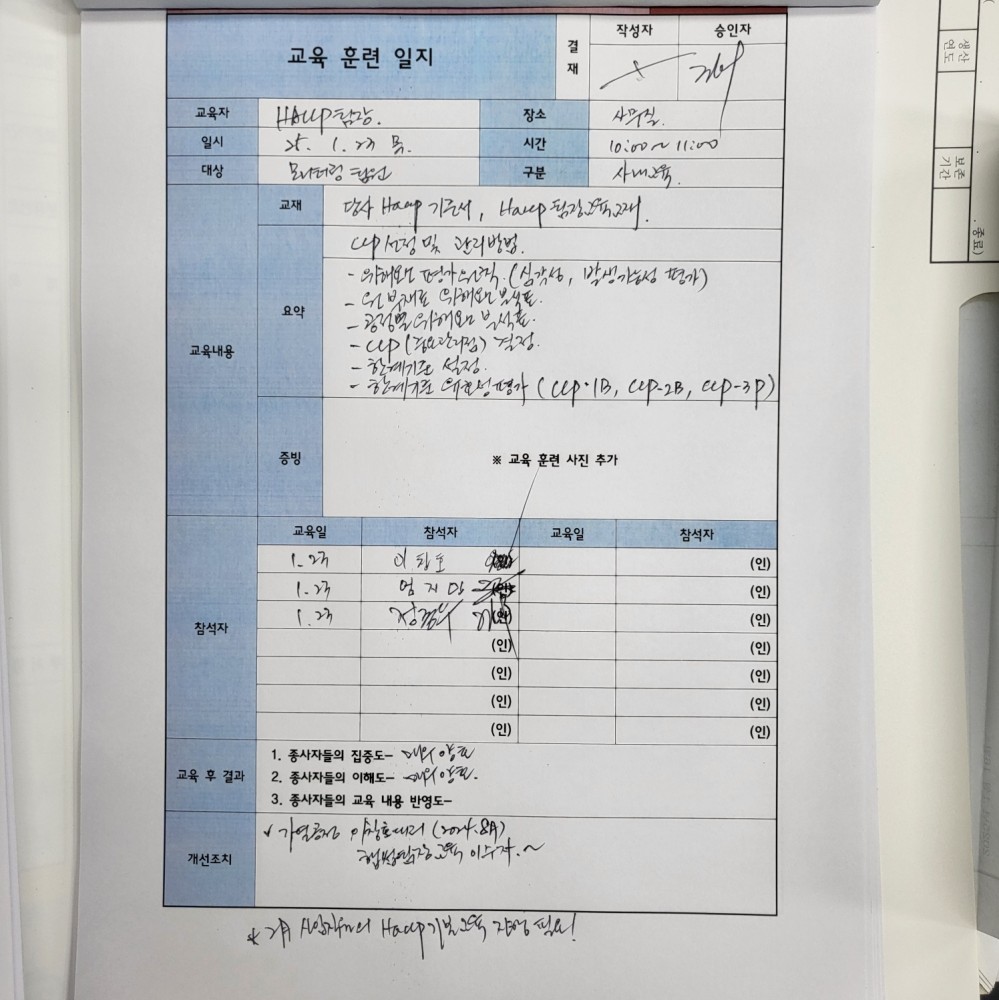 교육 훈련 일지
결재
작성자 승인자
교육자 HACCP팀장. 장소 사무실.
일시 25. 1. 23 목. 시간 10:00~11:00
대상 모니터링 팀원 구분 사내교육.
교육내용
교재 당사 Haccp 기준서, Haccp 팀장교육교재.
요약 CCP 선정 및 관리방법.
- 위해요소 평가원칙 (심각성, 발생가능성 평가)
- 원·부재료 위해요소 분석표.
- 공정별 위해요소 분석표.
- CCP (중요관리점) 결정.
- 한계기준 설정.
- 한계기준 유효성평가 (CCP-1B, CCP-2B, CCP-3P)
증빙 ※ 교육 훈련 사진 추가
참석자
교육일 참석자 교육일 참석자
1. 23 이창호 (인)
1. 23 엄지 (인)
1. 23 (인) (인)
(인) (인)
(인) (인)
(인) (인)
(인) (인)
교육 후 결과
1. 종사자들의 집중도- 매우 양호
2. 종사자들의 이해도- 매우 양호.
3. 종사자들의 교육 내용 반영도-
개선조치
v 가열공정 이창호대리 (2024. 8月)
햅썹팀장교육 이수자.~
* 2月 Haccp기본교육 진행 필요!
생산연도
보존기간
종료)